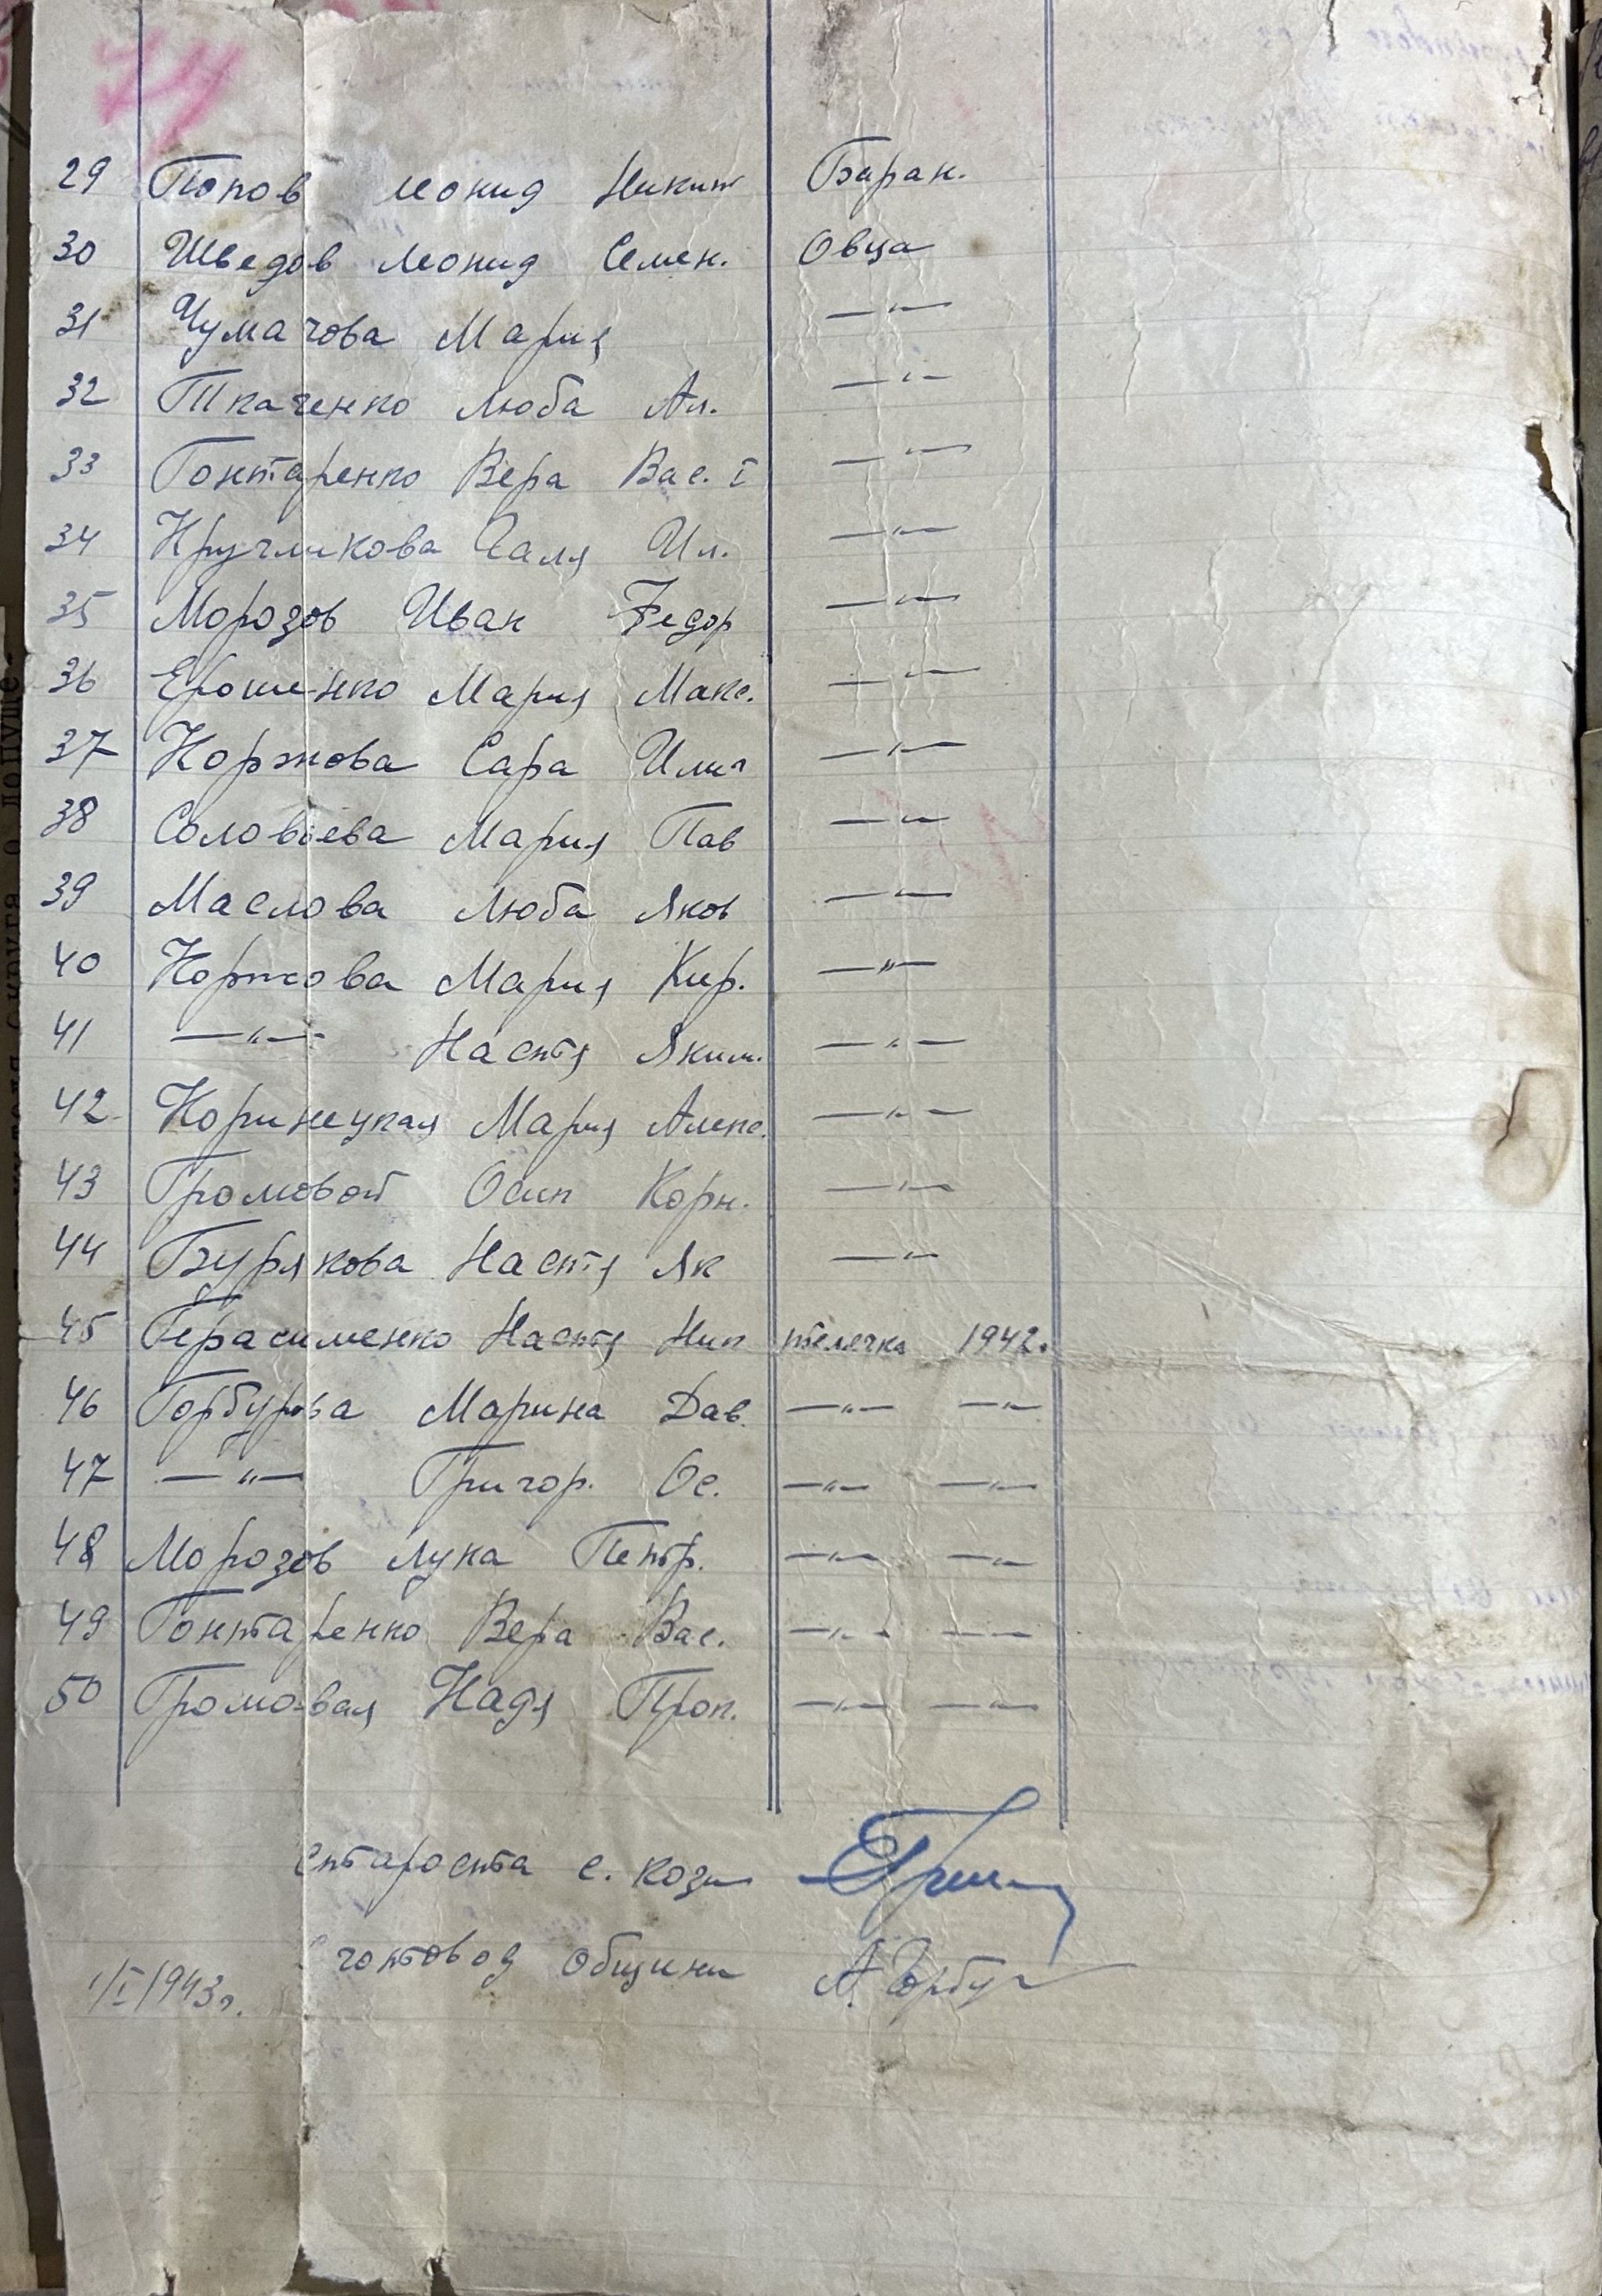 29 Попов Леонид Никит Баран.
30 Шведов Леонид Семен. Овца
31 Чумачова Мария —"—
32 Ткаченко Люба Ал. —"—
33 Гонтаренко Вера Вас. I —"—
34 Кручликова Галя Ил. —"—
35 Морозов Иван Федор —"—
36 Ерошенко Мария Макс. —"—
37 Коржова Сара Илич —"—
38 Соловьева Мария Пав —"—
39 Маслова Люба Яков —"—
40 Коржова Мария Кир. —"—
41 —"— Настя Яким. —"—
42 Мария Алекс. —"—
43 Громовой Осип Корн. —"—
44 Бурякова Настя Як —"—
45 Герасименко Настя Ник телячка 1942г.
46 Горбунова Марина Дав. —"— —"—
47 —"— Григор. Ос. —"— —"—
48 Морозов Лука Петр. —"— —"—
49 Гонтаренко Вера Вас. —"— —"—
50 Громовая Надя Проп. —"— —"—
Староста с.
Счотовод общини
1/I 1943г.